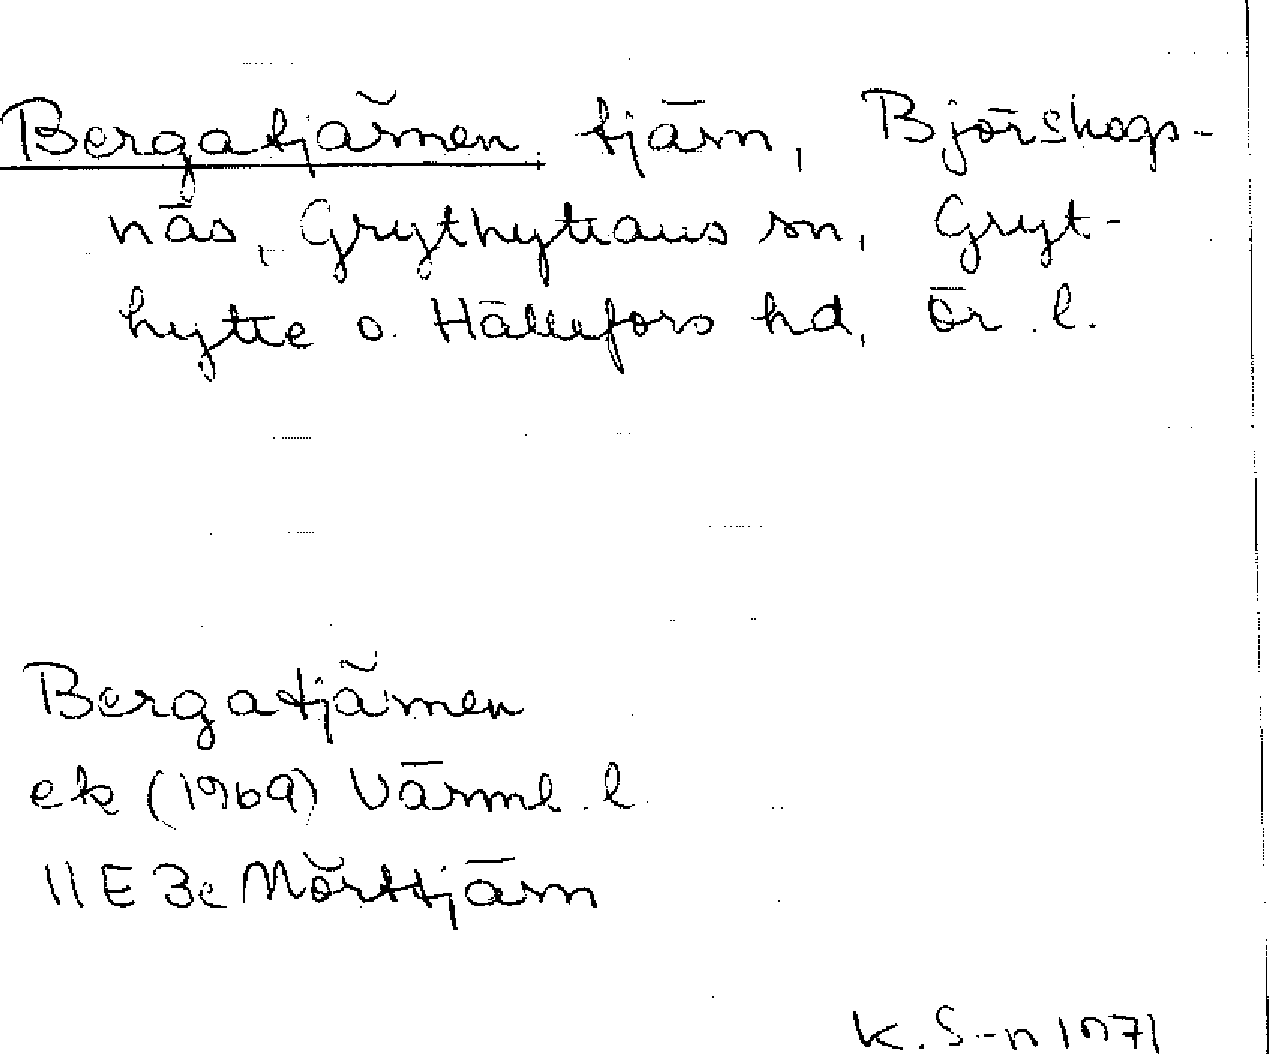 Bergatjärnen. tjärn, Björskogs-
näs, Grythyttans sn, Gryt-
hytte o. Hällefors hd, Ör. l.
Bergatjärnen
ek (1969) Värml. l.
11E 3c Mörttjärn
K. S-n 1971